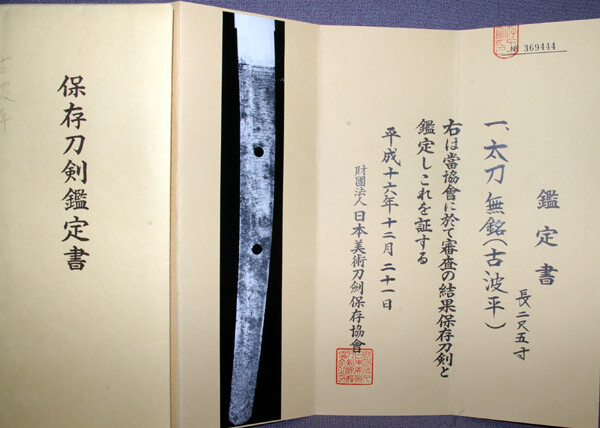 保存刀剣鑑定書
№ 369444
鑑定書
一、太刀 無銘(古波平)
長二尺五寸
右は當協會に於て審査の結果保存刀剣と
鑑定しこれを証する
平成十六年十二月二十一日
財團法人 日本美術刀劍保存協會